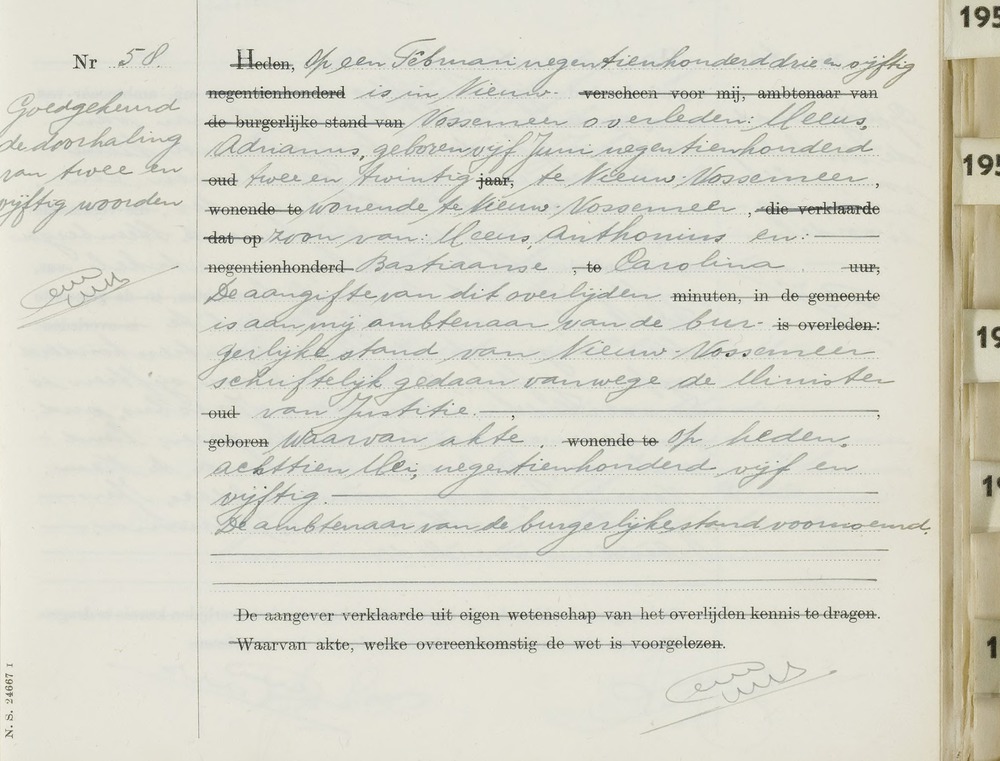 Nr 58.
Goedgekeurd
de doorhaling
van twee en
vijftig woorden
Heden, Op een Februari negentienhonderd drie en vijftig
negentienhonderd is in Nieuw- verscheen voor mij, ambtenaar van
de burgerlijke stand van Vossemeer overleden: Meeus,
Adrianus, geboren vijf Juni negentienhonderd
oud twee en twintig jaar, te Nieuw-Vossemeer,
wonende te wonende te Nieuw-Vossemeer, die verklaarde
dat op zoon van: Meeus, Anthonius en:
negentienhonderd Bastiaanse, te Carolina uur,
De aangifte van dit overlijden minuten, in de gemeente
is aan mij ambtenaar van de bur- is overleden:
gerlijke stand van Nieuw-Vossemeer
schriftelijk gedaan vanwege de Minister
oud van Justitie. , ,
geboren Waarvan akte. wonende te Op heden,
achttien Mei, negentienhonderd vijf en
vijftig.
De ambtenaar van de burgerlijke stand voornoemd.
De aangever verklaarde uit eigen wetenschap van het overlijden kennis te dragen.
Waarvan akte, welke overeenkomstig de wet is voorgelezen.
N. S. 24667 I
195
195
19
19
1